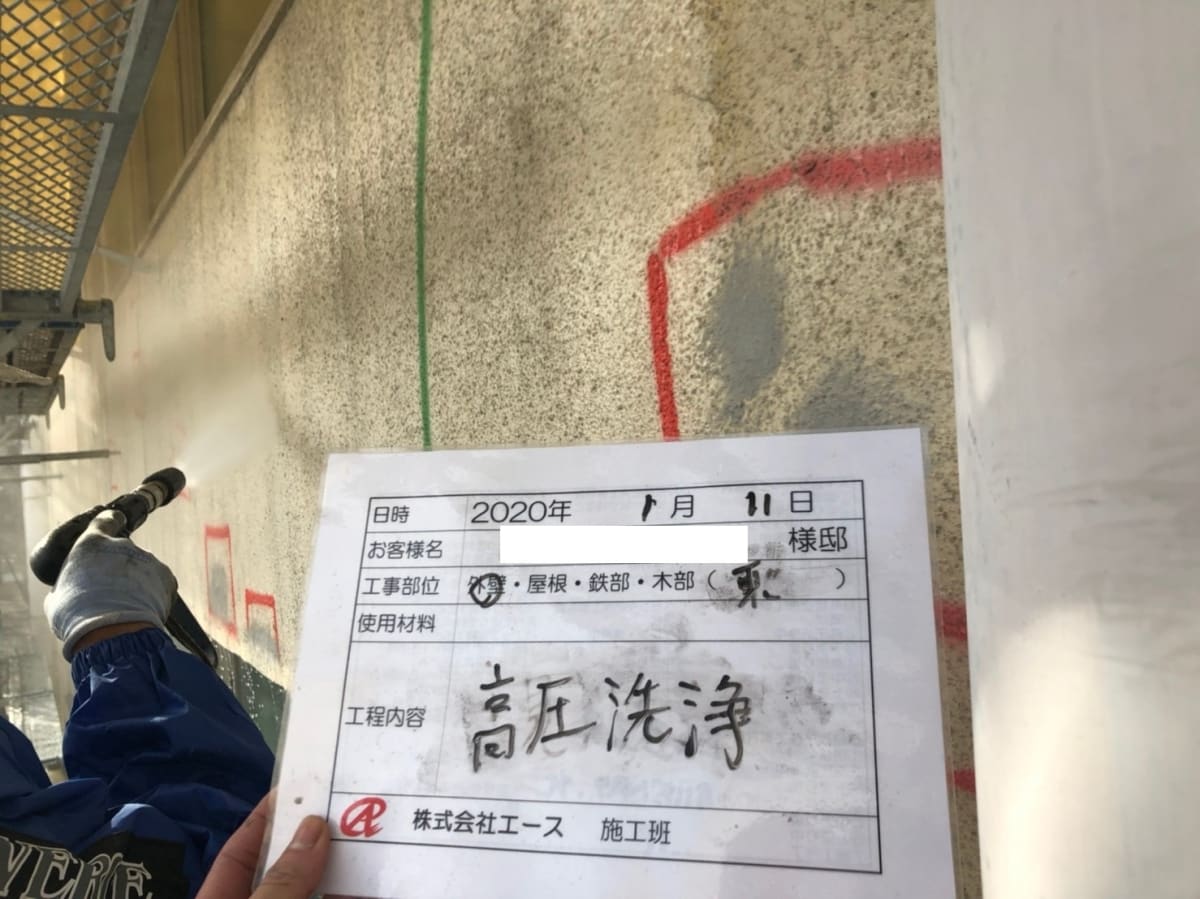 日時 2020年 1月 11日
お客様名 様邸
工事部位 外壁・屋根・鉄部・木部（ 東 ）
使用材料
工程内容 高圧洗浄
株式会社エース 施工班